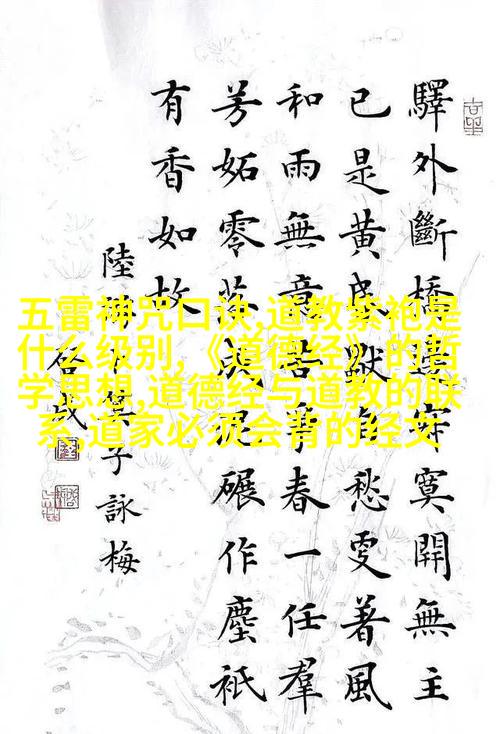 驛外斷橋邊寂寞開無主
已是黃昏獨自愁更著風
和雨無意苦爭春一任羣
芳妬零落成泥碾作塵祇
有香如故
陸游卜算子詠梅
五雷神咒口诀,道教紫袍是
什么级别,《道德经》的哲
学思想,道德经与道教的联
系,道家必须会背的经文